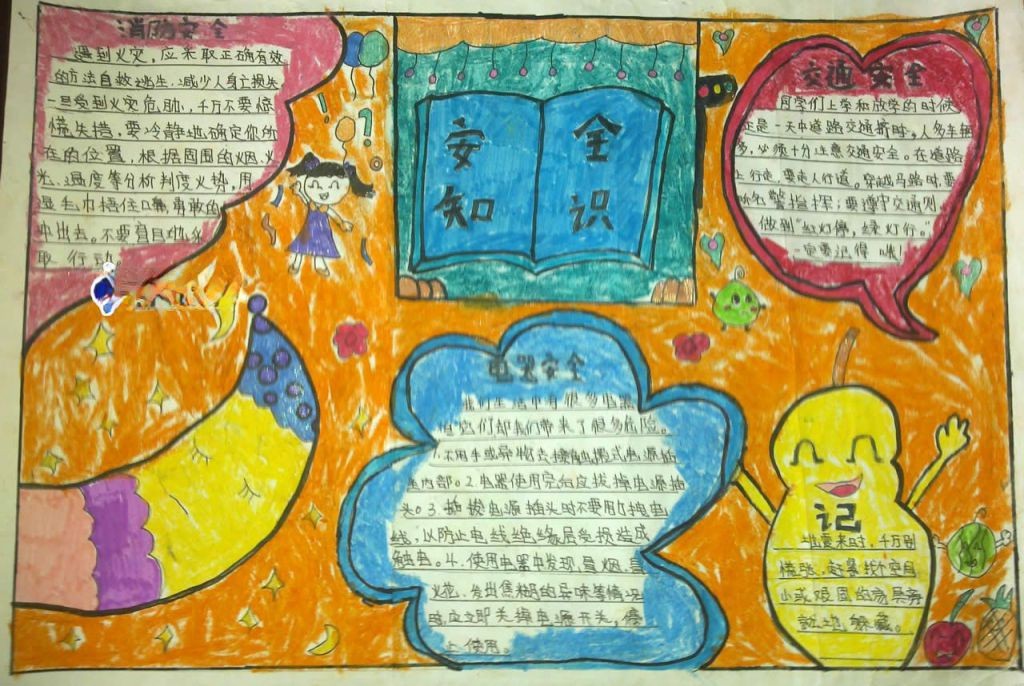 消防安全
遇到火灾，应采取正确有效
的方法自救逃生，减少人身亡损失
一旦受到火灾危助，千万不要惊
慌失措，要冷静地确定你所
在的位置，根据周围的烟、火
光、温度等分析判度火势，用
湿毛巾捂住口鼻勇敢的
冲出去。不要盲目
取行动。
安全
知识
交通安全
同学们上学和放学的时候
正是一天中道路交通挤时。人多车辆
多，必须十分注意交通安全。在道路
上行走，要走人行道。穿越马路时，要
听 警指挥；要遵守交通则
做到“红灯停，绿灯行。”
一定要记得哦！
电器安全
我们生活中有很多电器
但它们却我们带来了很多危险。
1.不用手或导物去接触摸式电源插
座内部。2.电器使用完后应拔掉电源插
头。3.插拨电源插头时不要用力拽电
线，以防止电线绝缘层受损造成
触电。4.使用电器中发现，冒烟，冒
火花，发出焦糊的异味等情况
时应立即关掉电源开关，停
止使用。
记
地震来时，千万别
慌张，赶紧找个空间
小或稳固的家具旁
就地躲藏。